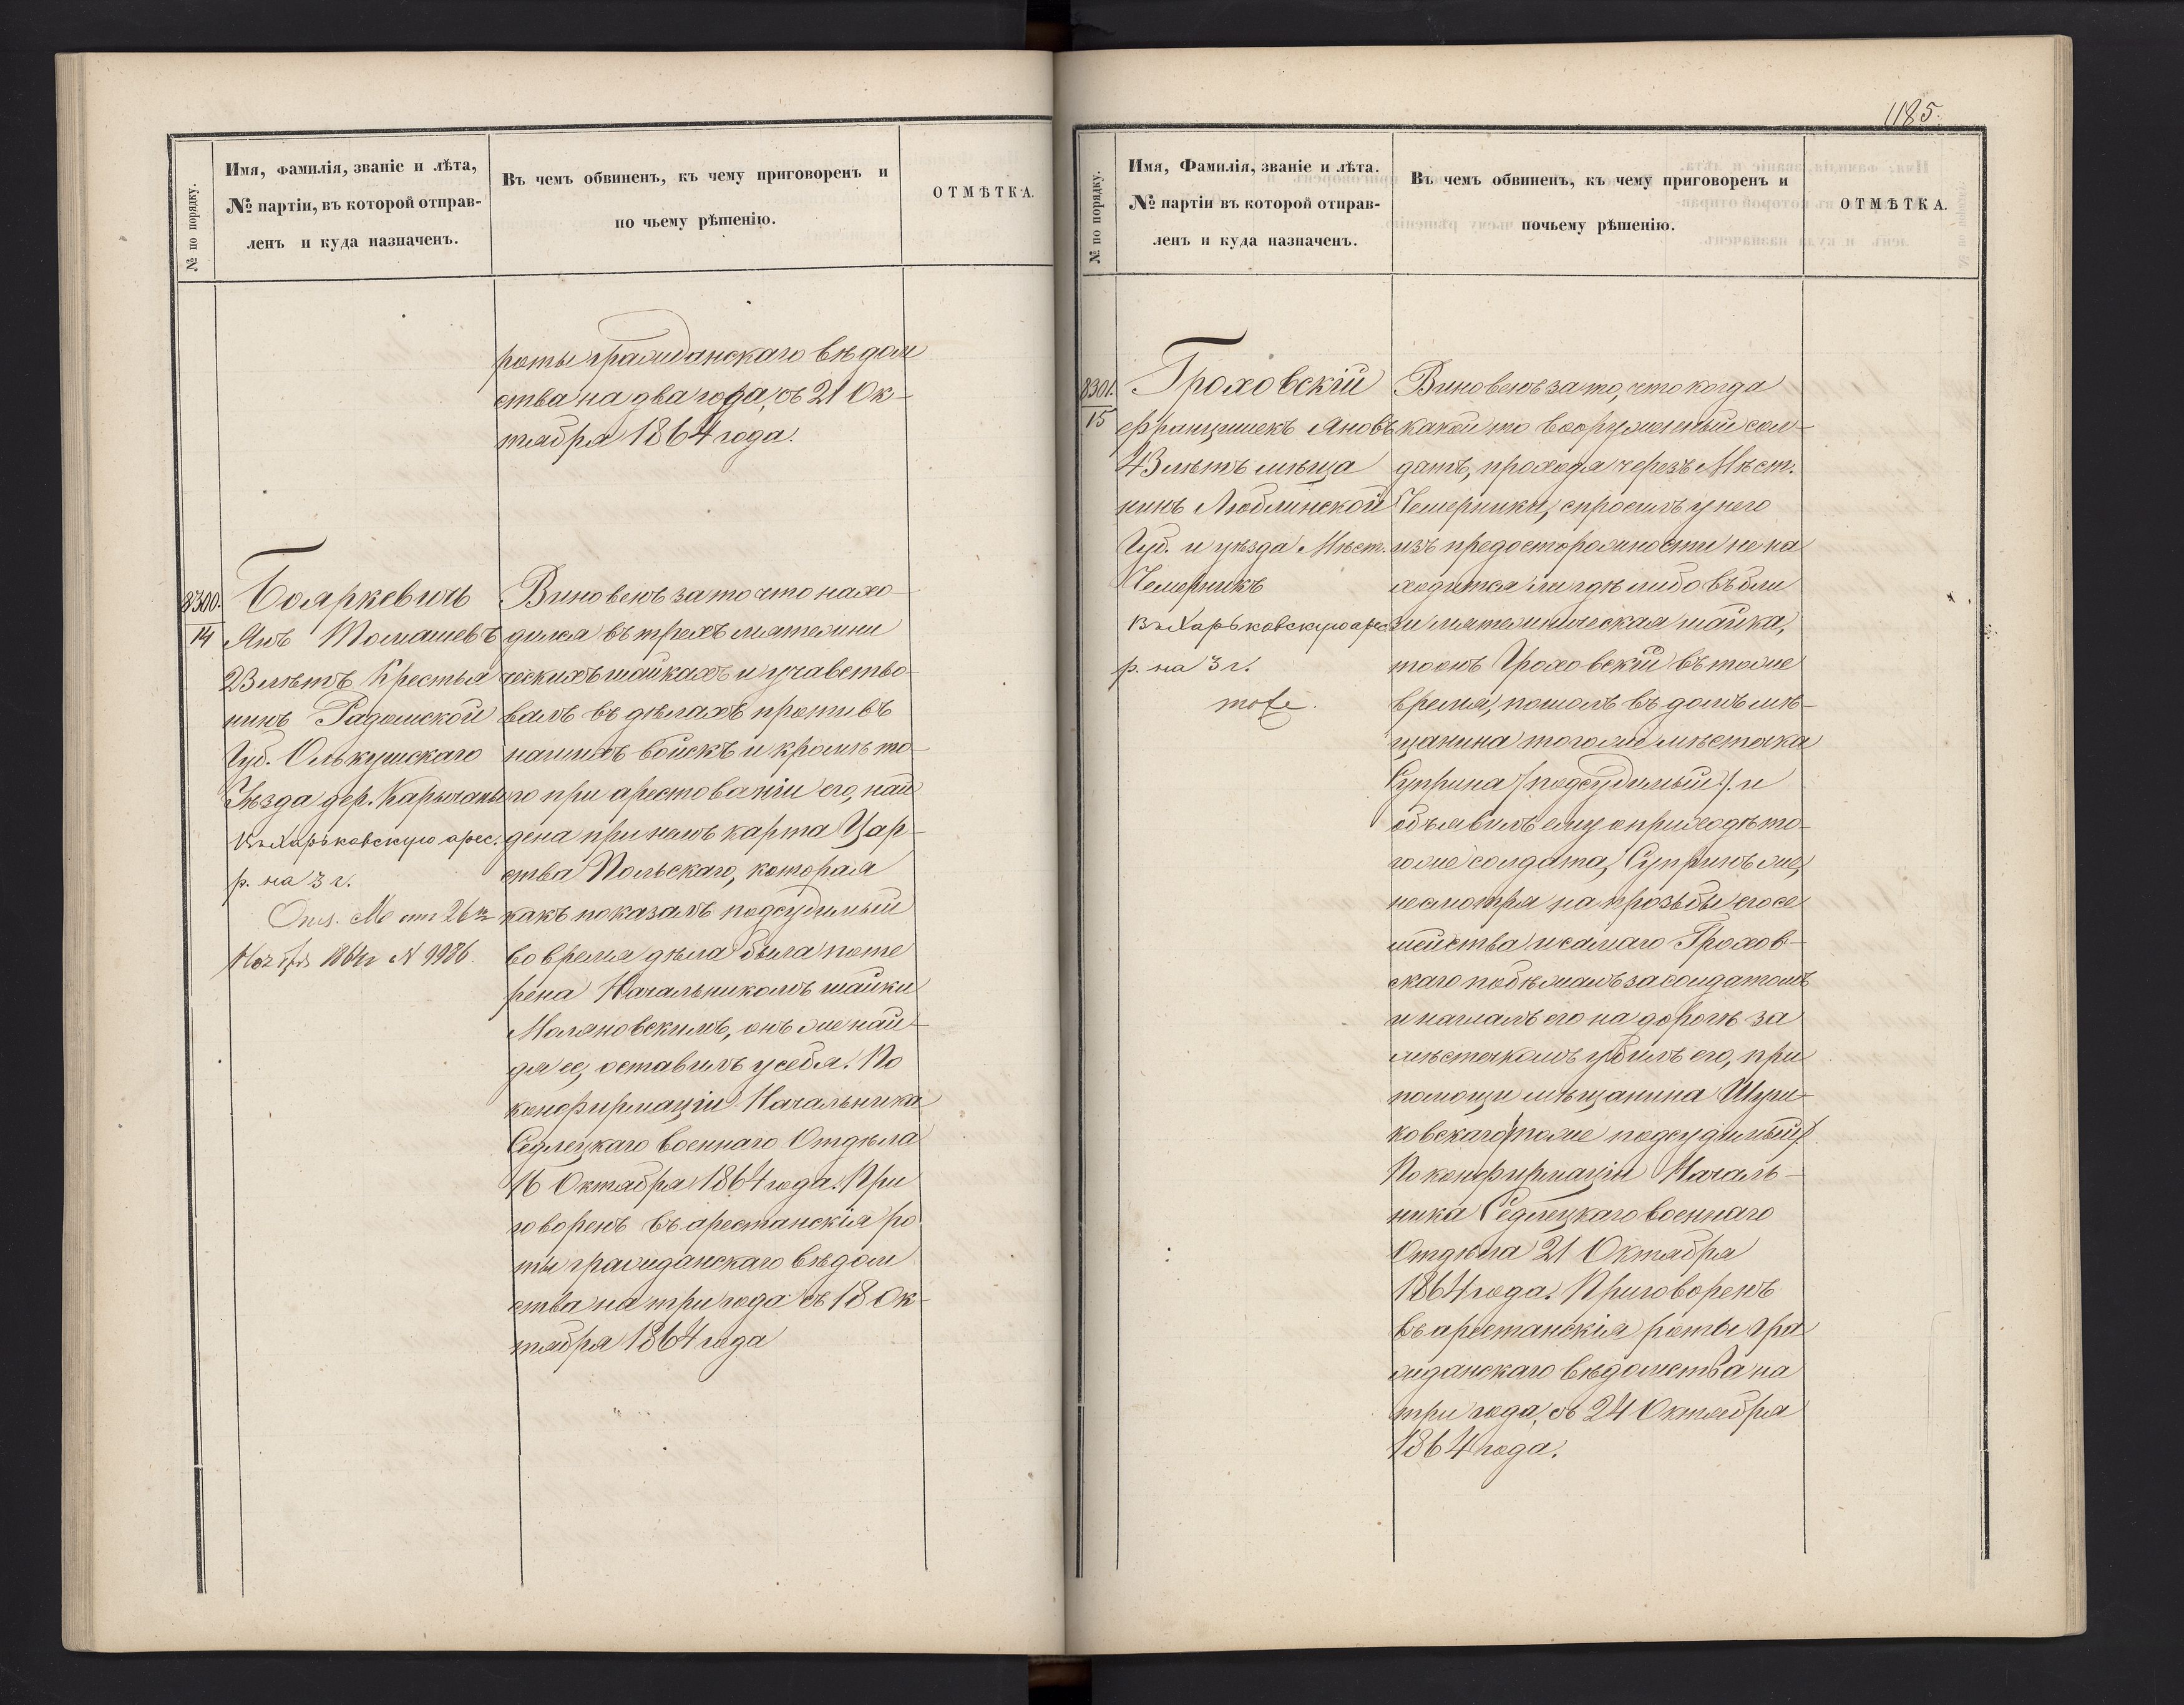 № по порядку.
Имя, фамилія, званіе и лѣта,
№ партіи, въ которой отправ-
ленъ и куда назначенъ.
Въ чемъ обвиненъ, къ чему приговоренъ и
по чьему рѣшенію.
ОТМѢТКА.
роты гражданскаго вѣдом
ства на два года, съ 21 Ок-
тября 1864 года.
8300.
14
Бояркевичъ
Янъ Томашевъ
23 лѣтъ Крестья
нинъ Радомской
Губ. Олькушскаго
Уѣзда дер.
Въ Харьковскую арес.
р. на 3 г.
№ 9986.
Виновенъ за то что нахо-
дился въ трехъ мятежни
ческихъ шайкахъ и учавство-
валъ въ дѣлахъ противъ
нашихъ войскъ и кромѣ то-
го при арестованіи его, най
дена при немъ карта Цар-
ства Польскаго, которая
какъ показалъ подсудимый
во время дѣла была поте
рена Начальникомъ шайки
Моляновскимъ, онъ же най-
дя ее, оставилъ у себя. По
конфирмаціи Начальника
Седлецкаго военнаго Отдѣла
16 Октября 1864 года. При
говоренъ въ арестанскія ро
ты гражданскаго вѣдом
ства на три года съ 18 Ок-
тября 1864 года
1185.
№ по порядку.
Имя, Фамилія, званіе и лѣта.
№ партіи въ которой отправ-
ленъ и куда назначенъ.
Въ чемъ обвиненъ, къ чему приговоренъ и
почьему рѣшенію.
ОТМѢТКА.
8301.
15
Гроховскій
Францишекъ Яновъ
43 лѣтъ мѣща
нинъ Люблинской
Губ. и уѣзда Мѣст.
Чемерникъ
Въ Харьковскую арес.
р. на 3 г.
тоже.
Виновенъ за то, что когда
какой то вооруженный сол-
датъ, проходя черезъ Мѣст.
Чемерники, спросилъ у него
изъ предосторожности не на
ходится ли гдѣ либо въ бли
зи мятежническая шайка,
то онъ Гроховскій въ тоже
время, пошолъ въ домъ мѣ-
щанина тогоже мѣстечка
Суприна /подсудимый/ и
объявилъ ему о приходѣ то-
гоже солдата, Супринъ же,
несмотря на прозьбы его се
мейства и самаго Грохов-
скаго побѣжалъ за солдатомъ
и нагналъ его на дорогѣ за
мѣстечкомъ убилъ его, при
помощи мѣщанина Шури-
ковскаго /тоже подсудимый/.
По конфирмаціи Началь-
ника Седлецкаго военнаго
Отдѣла 21 Октября
1864 года. Приговоренъ
въ арестанскія роты гра
жданскаго вѣдомства на
три года, съ 24 Октября
1864 года.